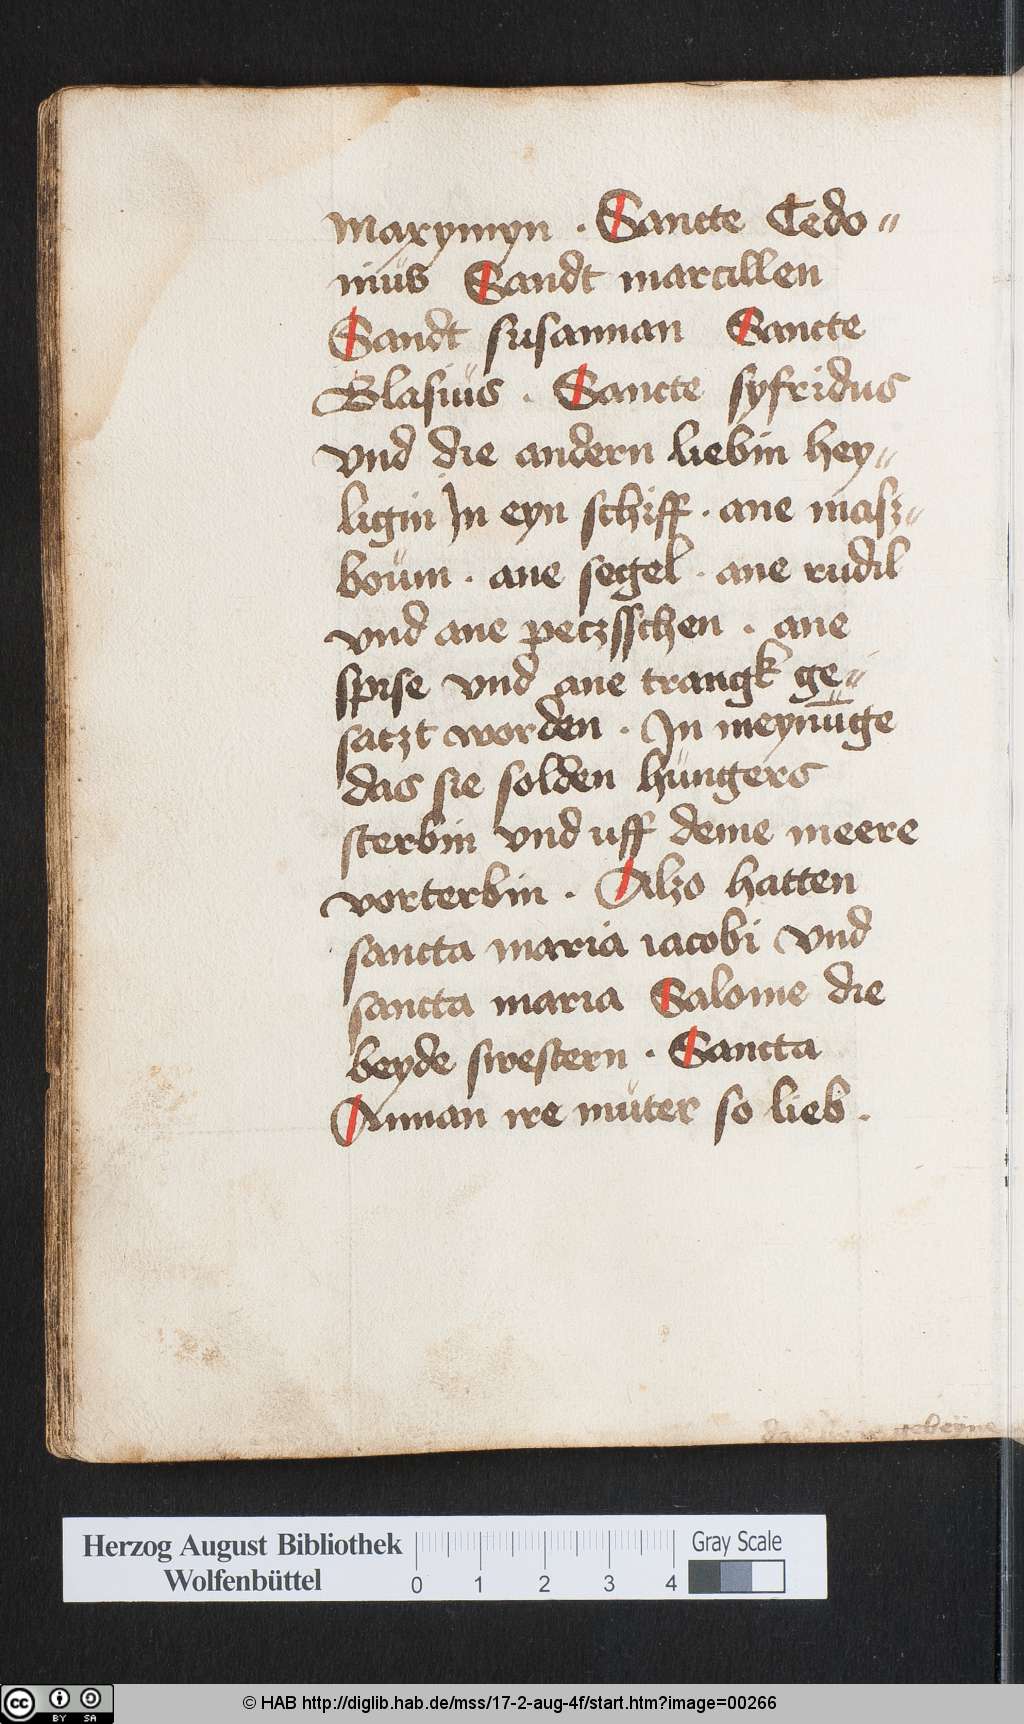 maxymyn . Sancte Cedo〃
niüs Sandt marcillen
Sandt susannan Sancte
Blasiüs . Sancte syfridus
vnd die andern liebin hey〃
ligin In eyn schiff . ane masz〃
boüm . ane segel . ane rudil
vnd ane peczsschen . ane
spise vnd ane trangk ge〃
saczt worden . In meynu̅ge
das sie solden hüngers
sterbin vnd uff deme meere
vorterbin . Alzo hatten
sancta maria iacobi vnd
sancta maria Salome die
beyde swestern . Sancta
Annan ire müter so lieb .
gebeyne
Herzog August Bibliothek
Wolfenbüttel
0 1 2 3 4
Gray Scale
cc BY SA
© HAB http://diglib.hab.de/mss/17-2-aug-4f/start.htm?image=00266